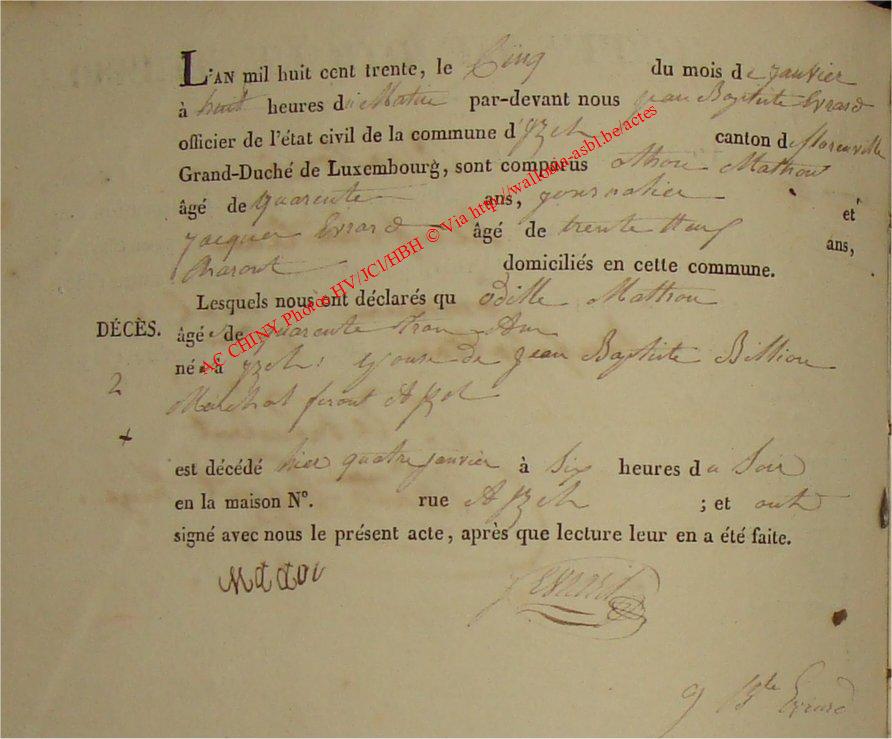 L'AN mil huit cent trente, le Cinq du mois de janvier
à huit heures du Matin par-devant nous jean Baptiste Evrard
officier de l'état civil de la commune d'Yzel canton de florenville
Grand-Duché de Luxembourg, sont comparus Mathou
âgé de quarente ans, journalier et
jacques Evrard âgé de trente neuf ans,
domiciliés en cette commune.
Lesquels nous ont déclarés qu odille Mathou
DÉCÈS. âgée de quarente trois Ans
2 née à yzel: Epouse de jean Baptiste Billion
Marchal feront A yzel
+
est décédé hier quatre janvier à Six heures du Soir
en la maison N°. rue A yzel ; et ont
signé avec nous le présent acte, après que lecture leur en a été faite.
J Evrard
j Bte Evrard
AC CHINY Photos HV/JCl/HBH © Via http://wallonia-asbl.be/actes